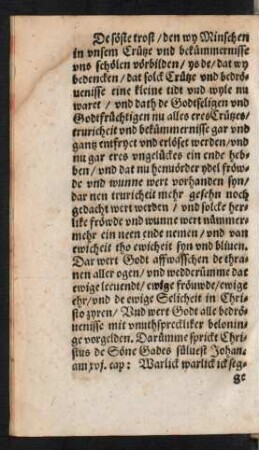 De söste trost / den wy Minschen
in vnsem Crütze vnd bekümmernisse
vns schölen vörbilden / ys de / dat wy
bedencken / dat solck Crütze vnd bedrö-
uenisse eine kleine tidt vnd wyle nu
waret / vnd dath de Godtseligen vnd
Godtfrüchtigen nu alles eres Crützes /
truricheit vnd bekümmernisse gar vnd
gantz entfryet vnd erlöset werden / vnd
nu gar eres vngelückes ein ende heb-
ben / vnd dat nu henuörder ydel fröw-
de vnd wunne wert vorhanden syn /
dar nen truricheit mehr gesehn noch
gedacht wert werden / vnd solcke her-
like fröwde vnd wunne wert nümmer-
mehr ein neen ende nemen / vnd van
ewicheit tho ewicheit syn vnd bliuen.
Dar wert Godt affwasschen de thra-
nen aller ogen / vnd wedderümme dat
ewige leeuendt / ewige fröuwde / ewige
ehr / vnd de ewige Selicheit in Chri-
sto zyren / Vnd wert Godt alle bedrö-
uenisse mit vnuthspreckliker belonin-
ge vorgelden. Darümme spricht Chri-
stus de Söne Gades süluest Johan-
am xvj. cap: Warlick warlick ick seg-
ge